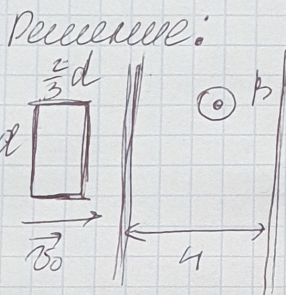 Решение:
2/3 d
B
d
v₀